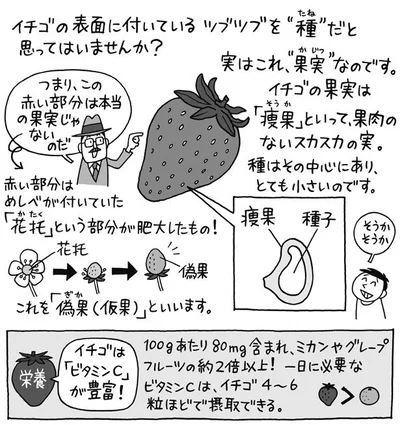 イチゴの表面に付いているツブツブを“種”だと
たね
思ってはいませんか?
実はこれ、“果実”なのです。
かじつ
イチゴの果実は
「痩果」といって、果肉の
そうか
ないスカスカの実。
種はその中心にあり、
とても小さいのです。
つまり、この
赤い部分は本当
の果実じゃ
ないのだ
赤い部分は
めしべが付いていた
「花托」という部分が肥大したもの!
かたく
花托
偽果
これを「偽果(仮果)」といいます。
ぎか
痩果
種子
そうか
そうか
栄養
イチゴは
「ビタミンC」
が豊富!
100gあたり80mg含まれ、ミカンやグレープ
フルーツの約2倍以上! 一日に必要な
ビタミンCは、イチゴ4〜6
粒ほどで摂取できる。
>